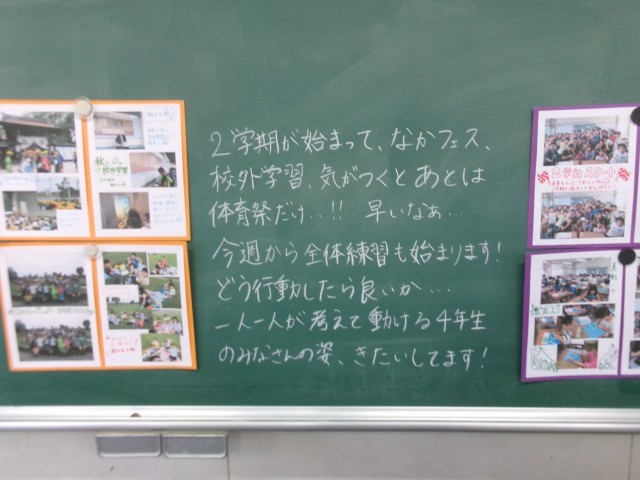 2学期が始まって、なかフェス、
校外学習、気がつくとあとは
体育祭だけ…!! 早いなぁ…
今週から全体練習も始まります!
どう行動したら良いか…
一人一人が考えて動ける4年生
のみなさんの姿、きたいしてます!
2学期スタート